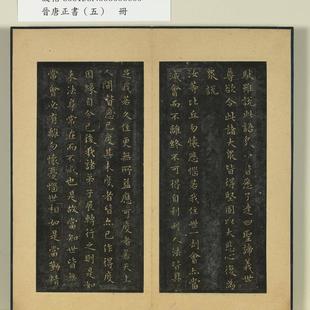 晉唐正書（五）　冊
駃雖說此語
皆悉了達四聖諦義世
尊欲令此諸大眾皆得堅固以大悲心復為
眾說
汝等比丘勿懷憂惱若我住世一劫會亦當
滅會而不離終不可得自利利人法皆具
足我若久住更無所益應可度者若天上
人間皆悉已度其未度者皆亦已作得度
因緣自今已後我諸弟子展轉行之則是如
來法身常在而不滅也是故當知世皆無
常會必有離勿懷憂惱世相如是當勤精